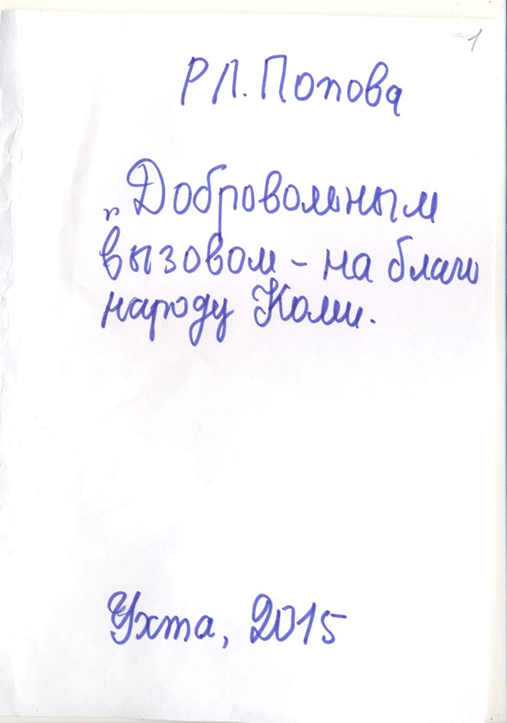 1
Р.Л. Попова
„Добровольным
вызовом – на благо
народу Коми.
Ухта, 2015